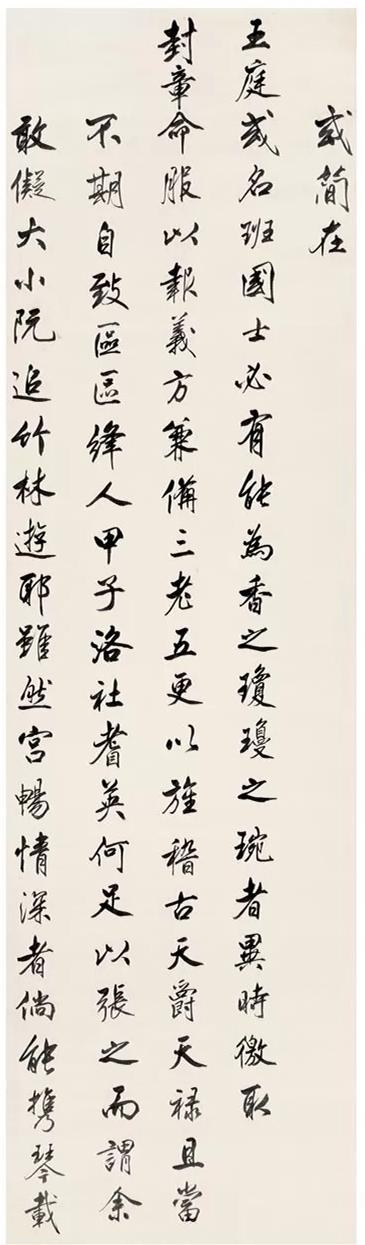 或簡在
王庭或名班國士必有能為香之瓊瓊之琬者異時徼取
封章命服以報義方兼備三老五更以旌稽古天爵天祿且當
不期自致區區絳人甲子洛社耆英何足以張之而謂余
敢儗大小阮追竹林遊耶雖然宮暢情深者倘能攜琴載